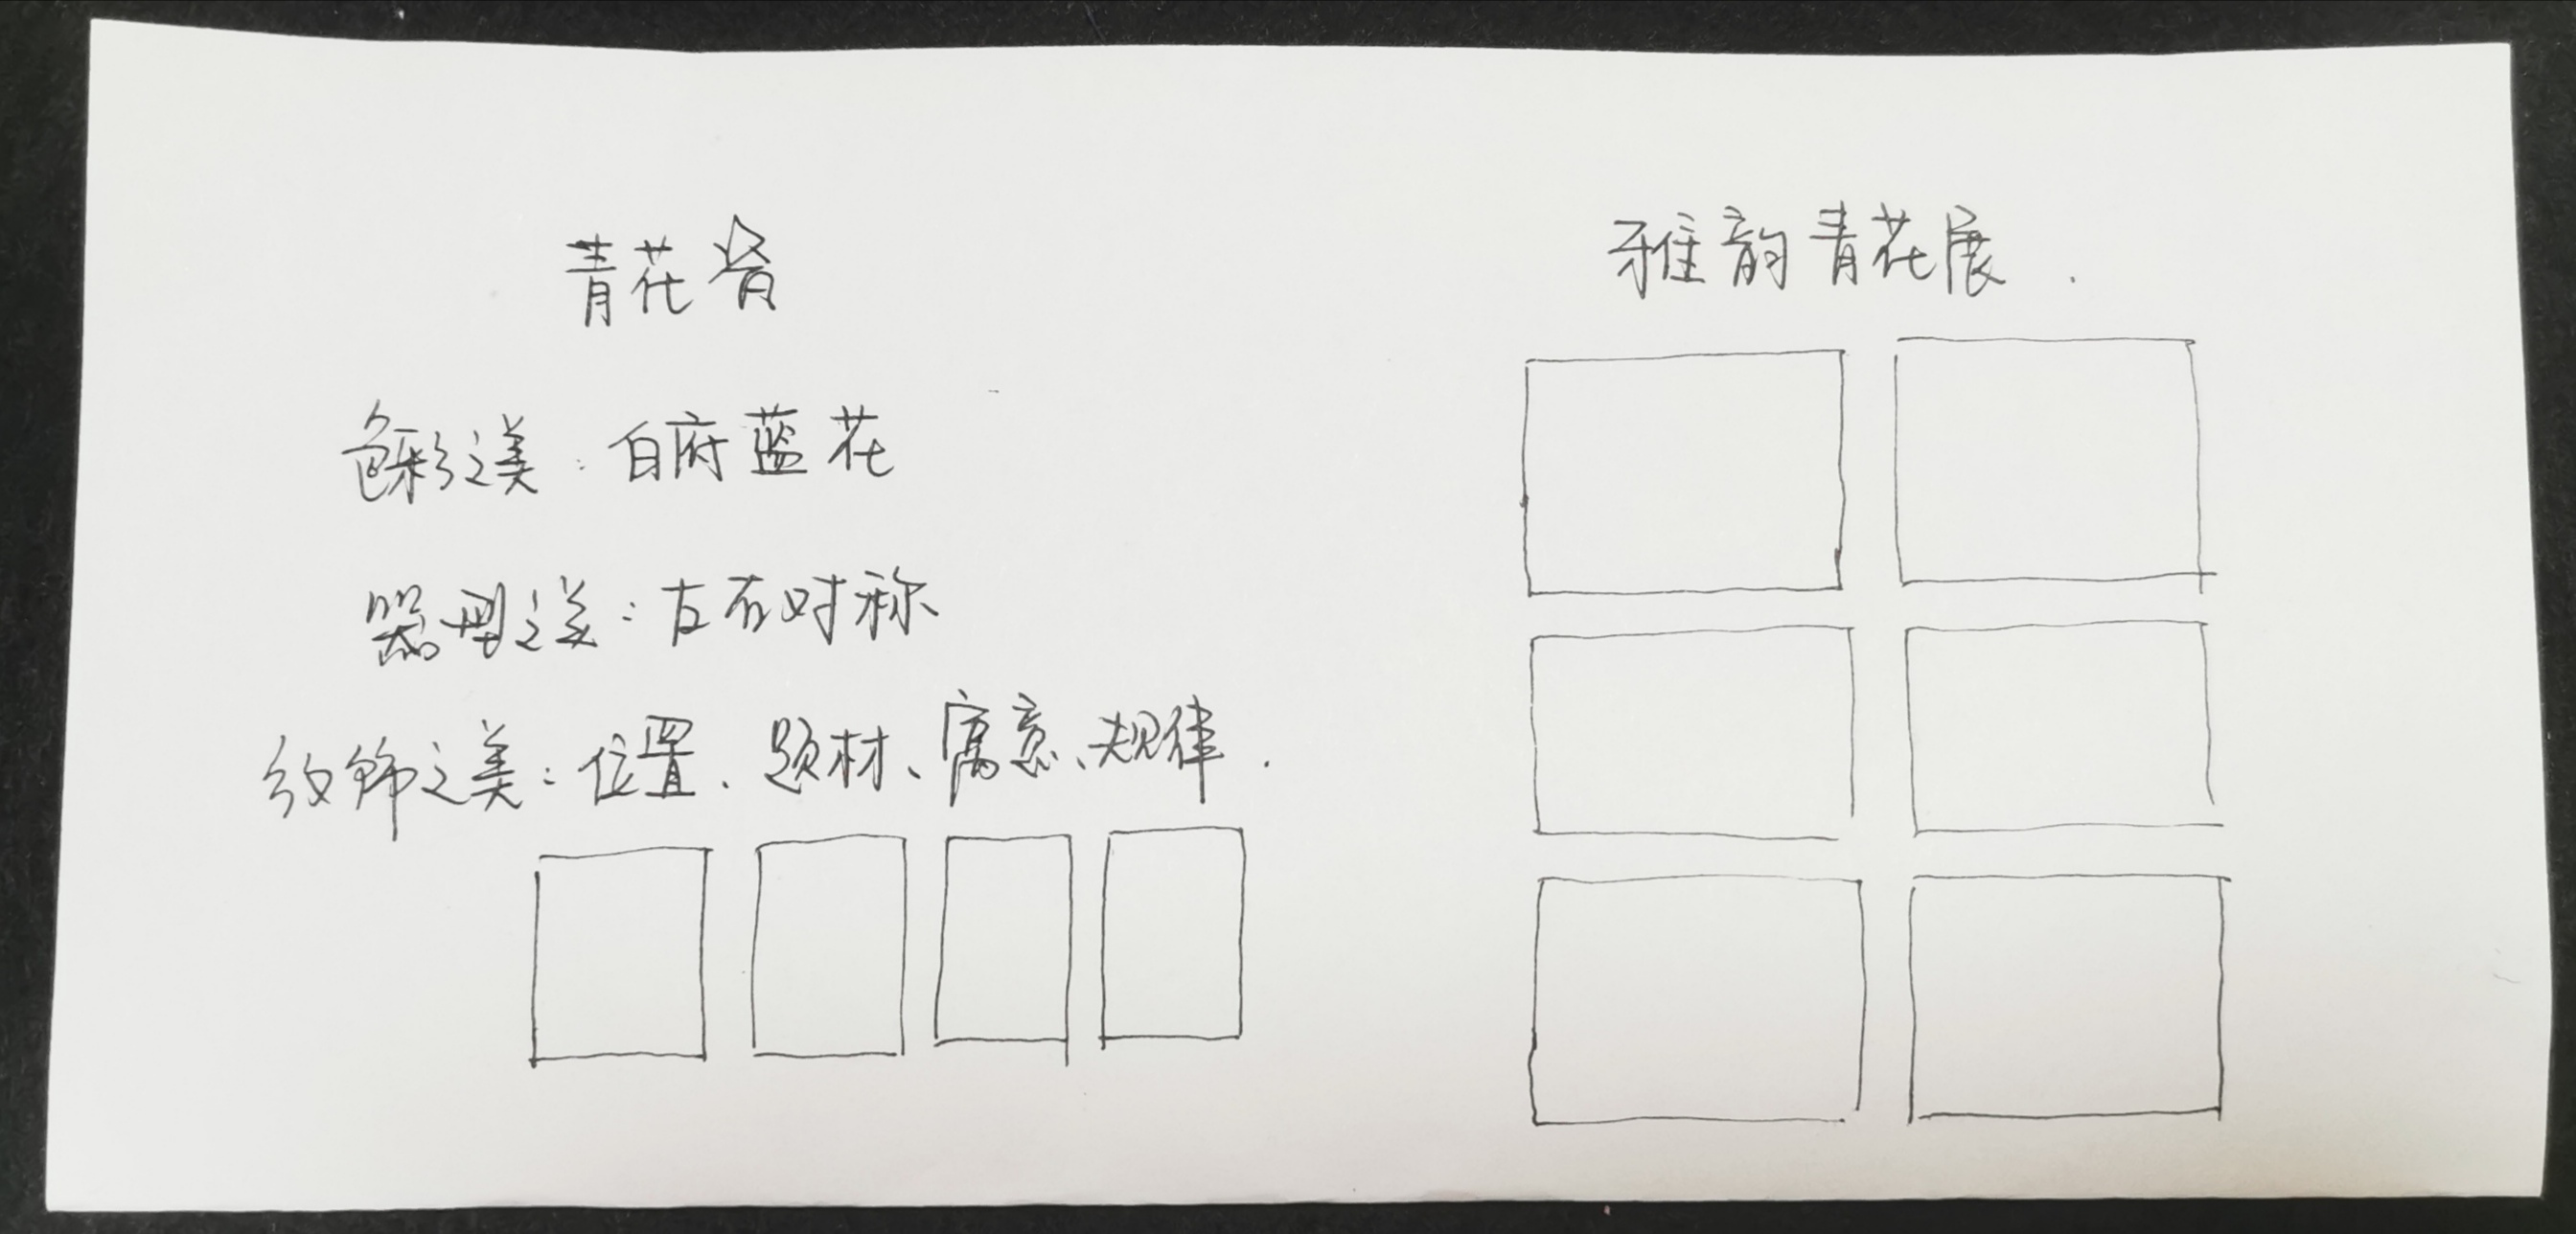 青花肴
色彩之美：白府蓝花
器型之美：左右对称
纹饰之美：位置、题材、寓意、规律.
雅韵青花展.